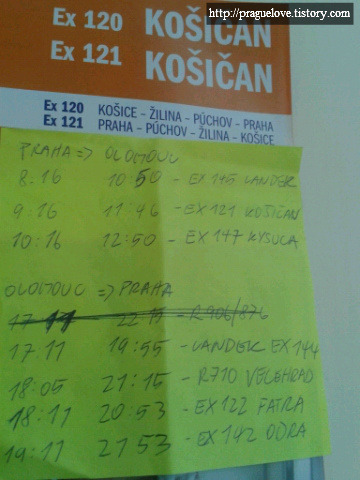 http://praguelove.tistory.com
Ex 120 KOŠIČAN
Ex 121 KOŠIČAN
Ex 120 KOŠICE – ŽILINA – PÚCHOV – PRAHA
Ex 121 PRAHA – PÚCHOV – ŽILINA – KOŠICE
PRAHA => OLOMOUC
8.16 10 50 - EX 145 LANDEK
9.16 11 46 - EX 121 KOŠIČAN
10:16 12:50 - EX 147 KYSUCA
OLOMOUC => PRAHA
17 11 22 11 - R 906/876
17 11 19:55 - LANDEK EX 144
18:05 21:15 - R710 VELEHRAD
18:11 20:53 - EX 122 FATRA
19:11 21 53 - EX 142 ODRA